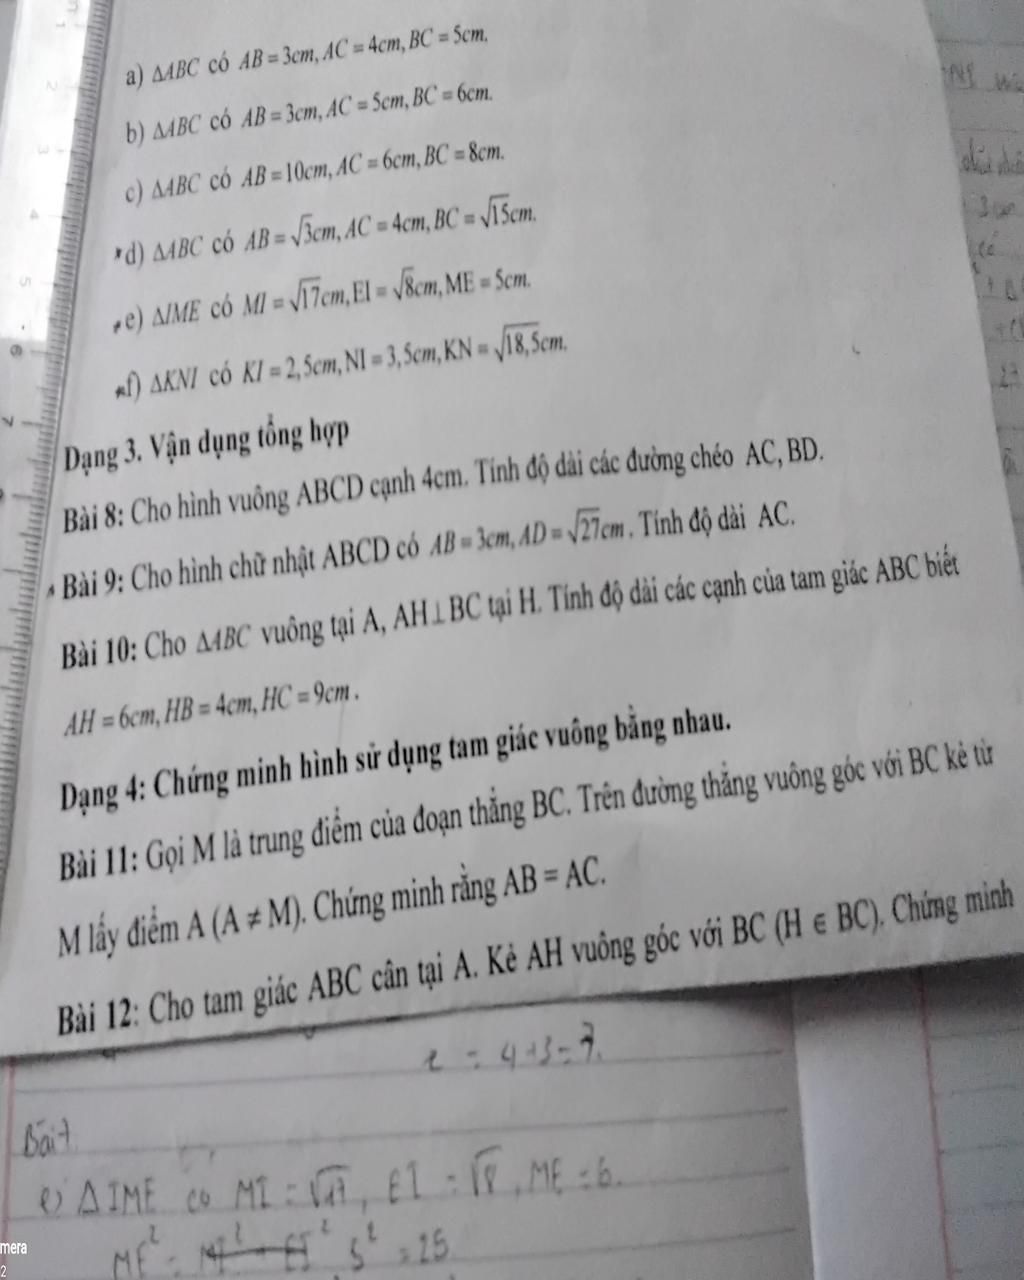 a) ΔABC có AB = 3cm, AC = 4cm, BC = 5cm.
b) ΔABC có AB = 3cm, AC = 5cm, BC = 6cm.
c) ΔABC có AB = 10cm, AC = 6cm, BC = 8cm.
*d) ΔABC có AB = √3cm, AC = 4cm, BC = √15cm.
*e) ΔIME có MI = √17cm, EI = √8cm, ME = 5cm.
*f) ΔKNI có KI = 2,5cm, NI = 3,5cm, KN = √18,5cm.
Dạng 3. Vận dụng tổng hợp
Bài 8: Cho hình vuông ABCD cạnh 4cm. Tính độ dài các đường chéo AC, BD.
Bài 9: Cho hình chữ nhật ABCD có AB = 3cm, AD = √27cm. Tính độ dài AC.
Bài 10: Cho ΔABC vuông tại A, AH⊥BC tại H. Tính độ dài các cạnh của tam giác ABC biết
AH = 6cm, HB = 4cm, HC = 9cm.
Dạng 4: Chứng minh hình sử dụng tam giác vuông bằng nhau.
Bài 11: Gọi M là trung điểm của đoạn thẳng BC. Trên đường thẳng vuông góc với BC kẻ từ
M lấy điểm A (A ≠ M). Chứng minh rằng AB = AC.
Bài 12: Cho tam giác ABC cân tại A. Kẻ AH vuông góc với BC (H ∈ BC). Chứng minh
= 4+3=7.
Bài 7
e) ΔIME có MI = √17, EI = √8, ME = 6.
ME² = MI² - EI² 5² = 25
mera
2